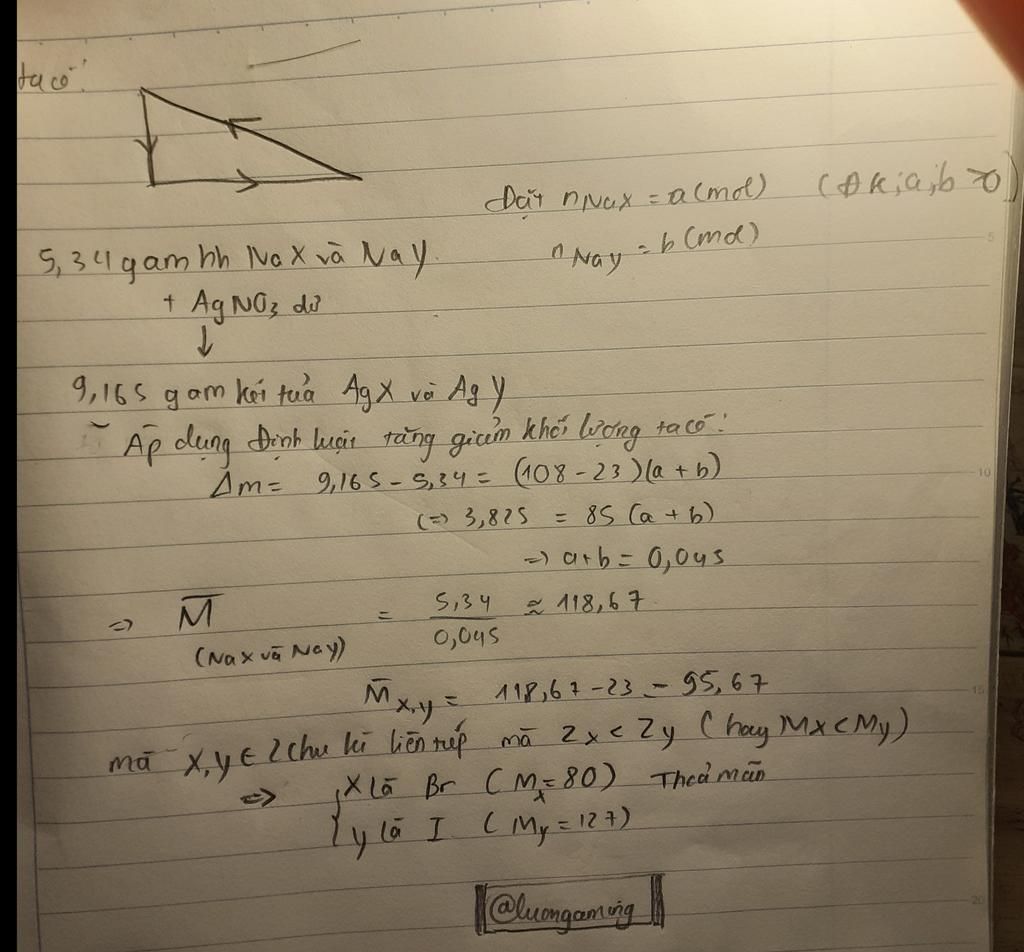 ta có:
Đặt nNaX = a (mol) (ĐK: a, b > 0)
nNaY = b (mol)
5,34 gam hh NaX và NaY.
+ AgNO3 dư
↓
9,165 gam kết tủa AgX và AgY
Áp dụng Định luật tăng giảm khối lượng ta có:
Δm = 9,165 - 5,34 = (108 - 23)(a + b)
(=> 3,825 = 85 (a + b)
=> a + b = 0,045
=> M̅ (NaX và NaY) = 5,34 / 0,045 ≈ 118,67
M̅ X,Y = 118,67 - 23 = 95,67
mà X, Y ∈ 2 chu kì liên tiếp mà ZX < ZY (hay MX < MY)
=> { X là Br (MX = 80) Thoả mãn
Y là I (MY = 127)
@luongaming
5
10
15
20